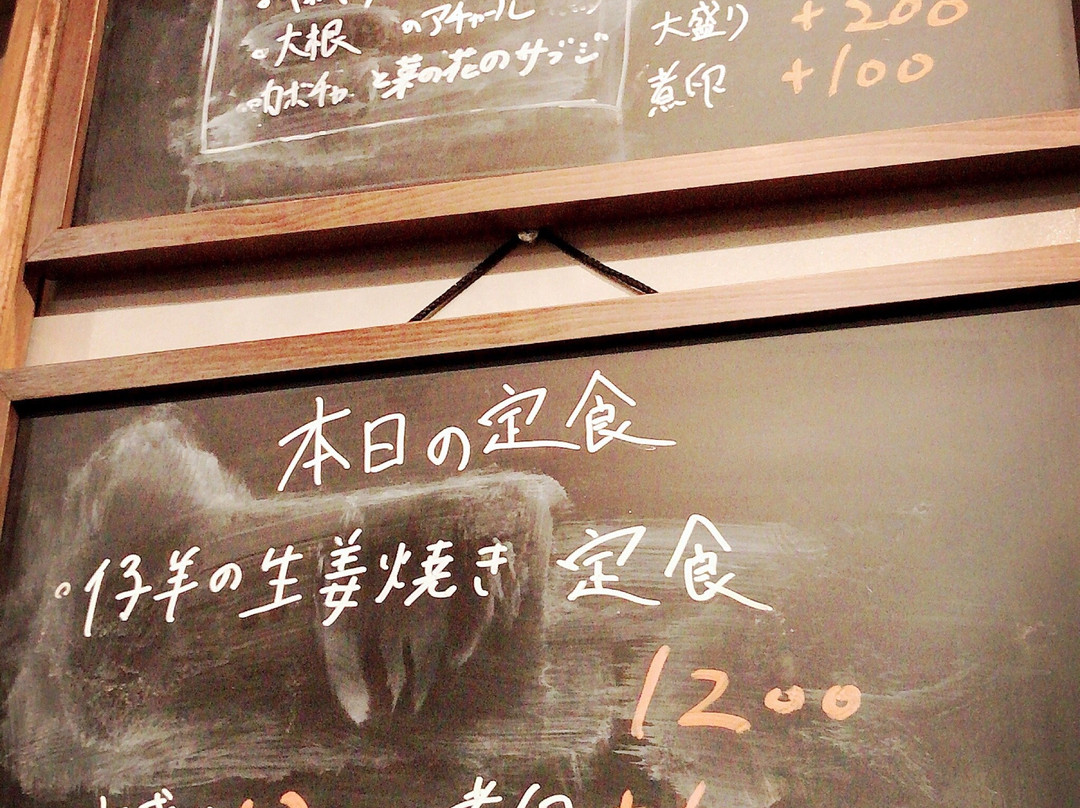 大根 のアチャール
カボチャ と菜の花のサブジ
大盛り +200
煮卵 +100
本日の定食
仔羊の生姜焼き 定食
1200